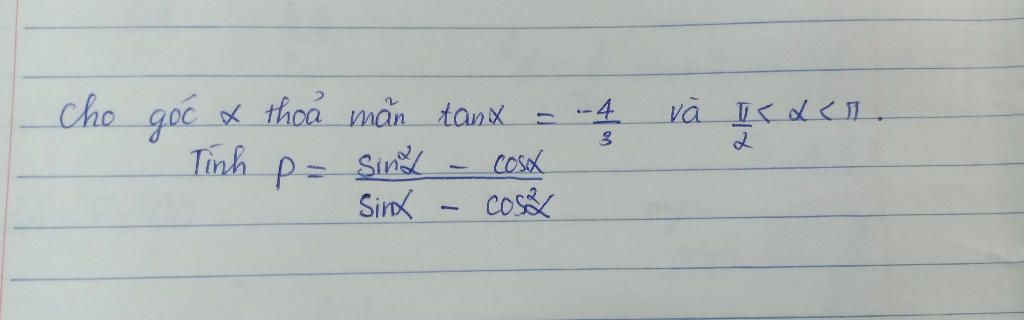 Cho góc α thoả mãn tanα = -4/3 và π/2 < α < π.
Tính P = (sin²α - cosα)/(sinα - cos²α)